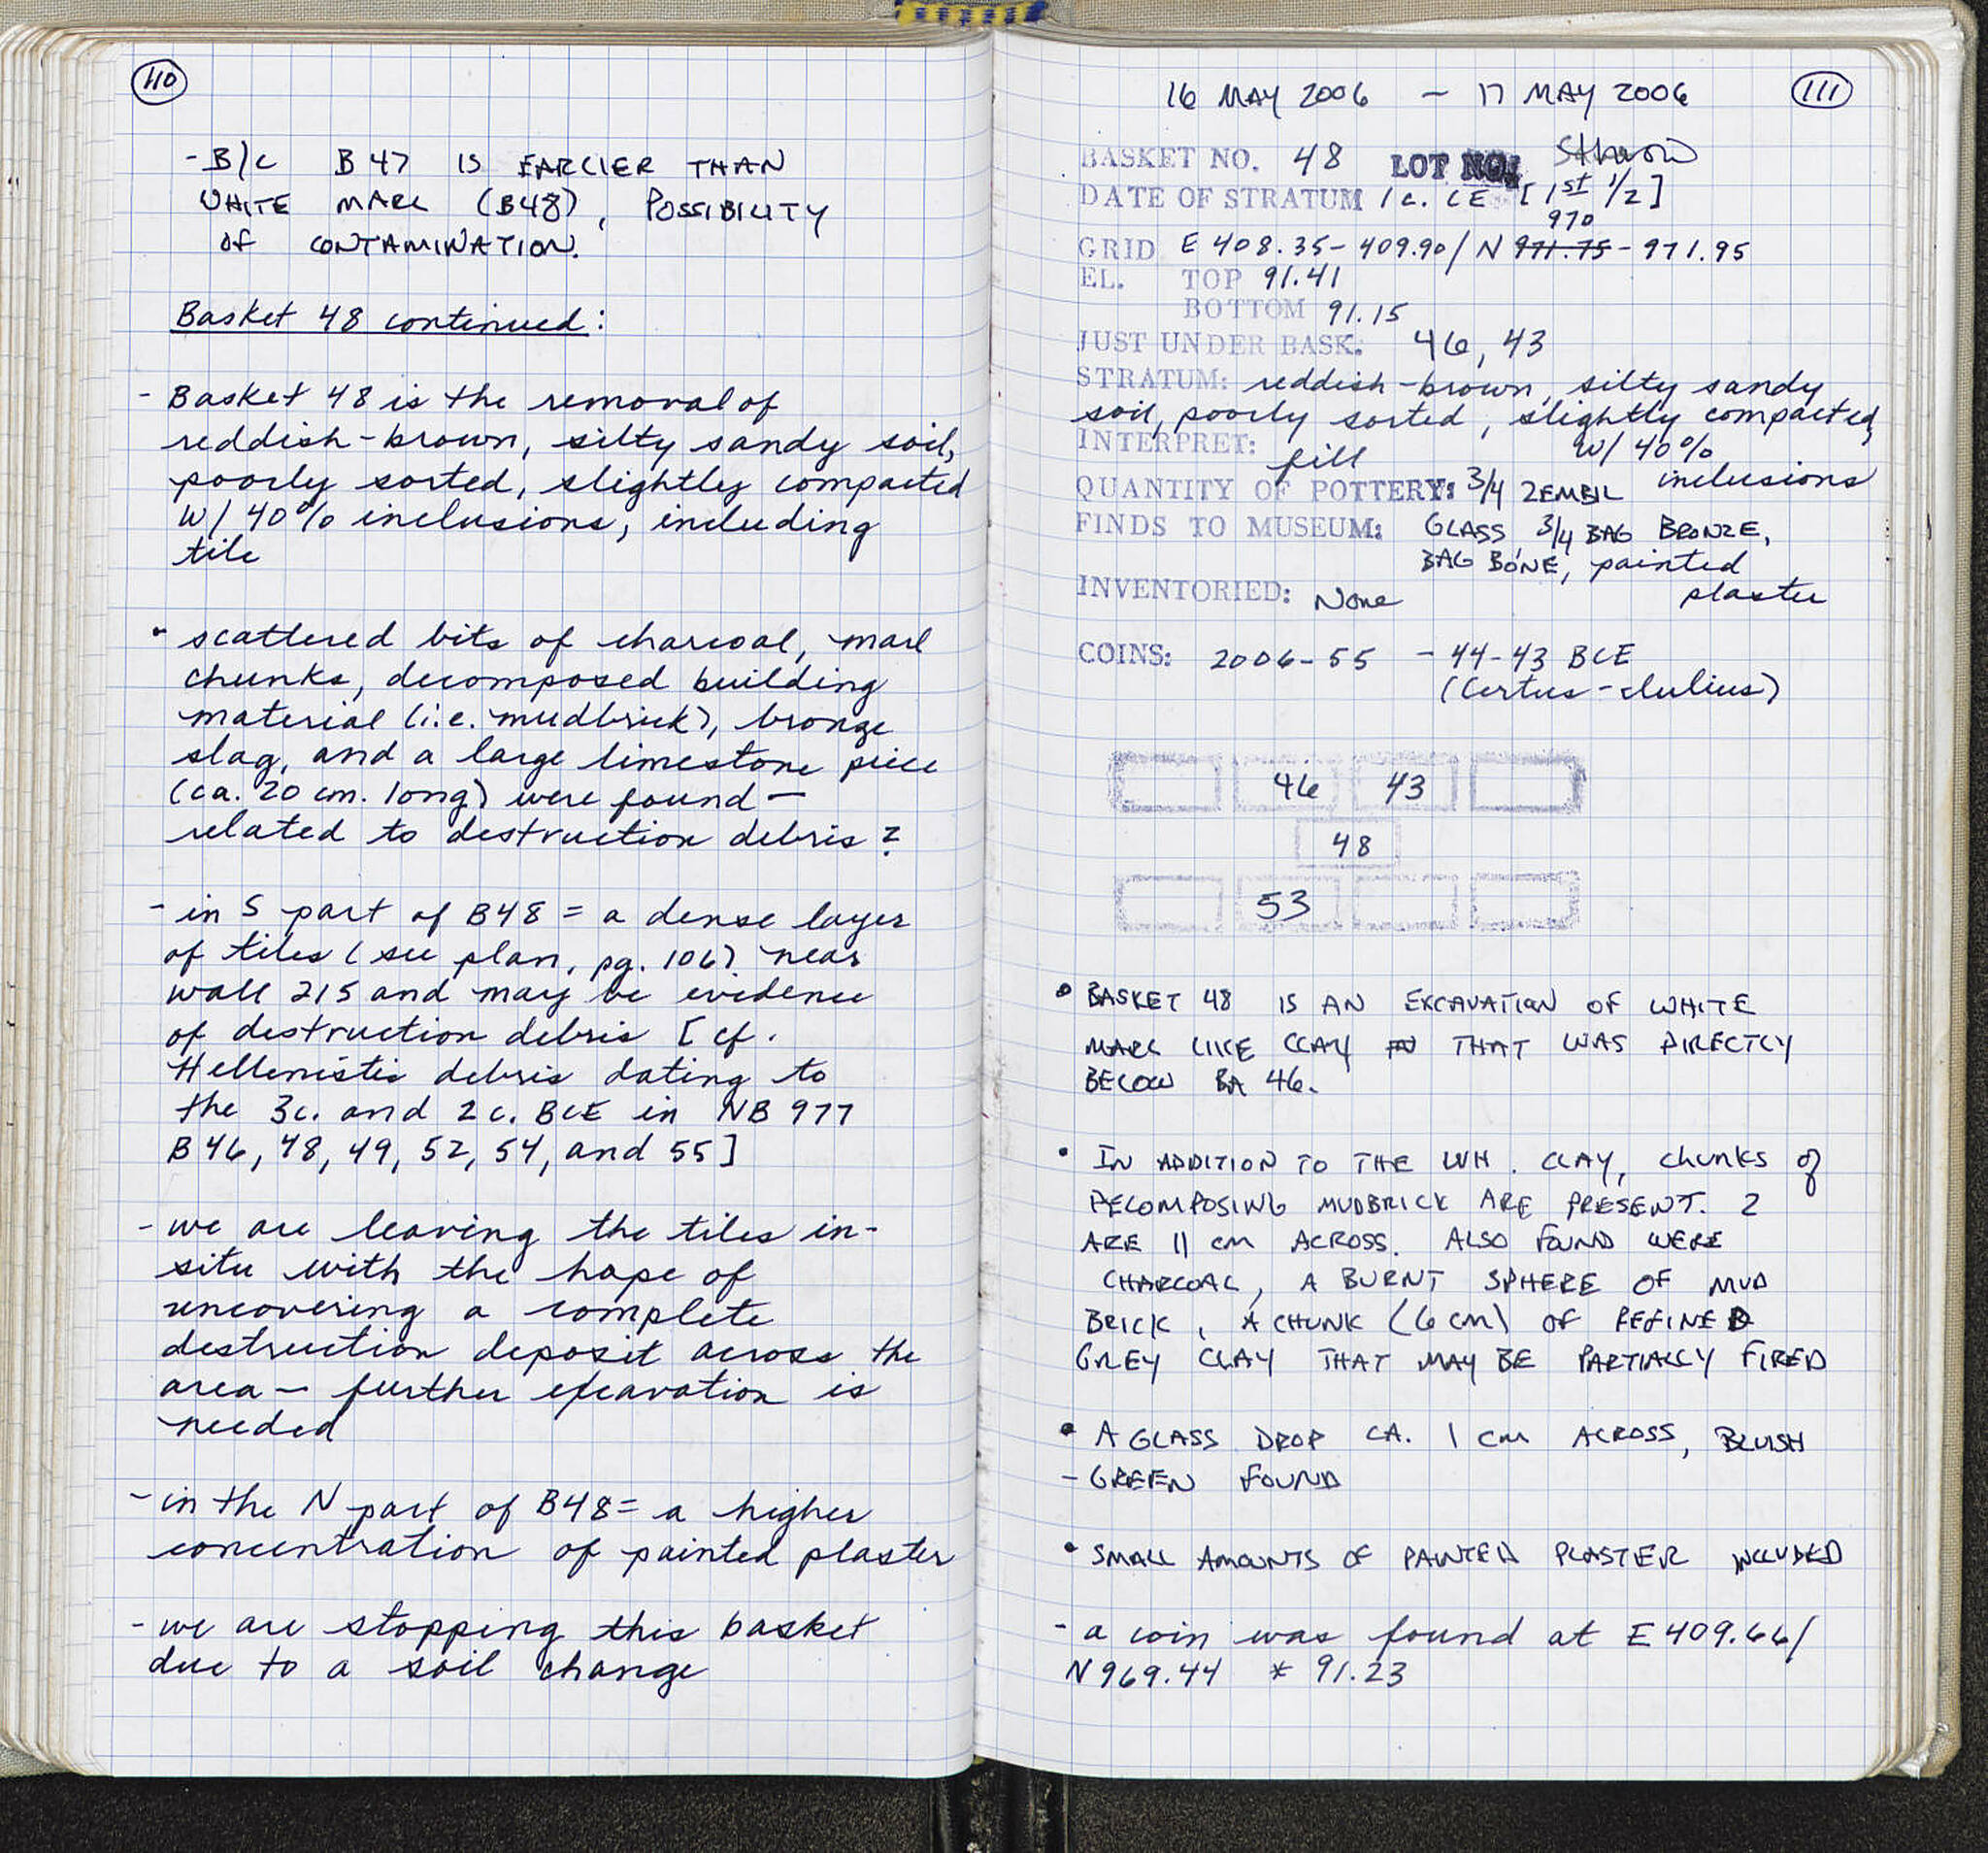 110
- B/C B47 IS EARLIER THAN
WHITE MARL (B48), POSSIBILITY
OF CONTAMINATION.
Basket 48 continued:
- Basket 48 is the removal of
reddish-brown, silty sandy soil,
poorly sorted, slightly compacted
w/ 40% inclusions, including
tile
- scattered bits of charcoal, marl
chunks, decomposed building
material (i.e. mudbrick), bronze
slag, and a large limestone piece
(ca. 20 cm. long) were found -
related to destruction debris?
- in S part of B48 = a dense layer
of tiles (see plan, pg. 106) near
wall 215 and may be evidence
of destruction debris [cf.
Hellenistic debris dating to
the 3c. and 2c. BCE in NB 977
B46, 48, 49, 52, 54, and 55]
- we are leaving the tiles in-
situ with the hope of
uncovering a complete
destruction deposit across the
area - further excavation is
needed
- in the N part of B48 = a higher
concentration of painted plaster
- we are stopping this basket
due to a soil change
16 MAY 2006 - 17 MAY 2006
111
BASKET NO. 48 LOT NO:
DATE OF STRATUM 1 c. CE [1st 1/2]
970
GRID E 408.35-409.90/ N 971.75-971.95
EL. TOP 91.41
BOTTOM 91.15
JUST UNDER BASK: 46, 43
STRATUM: reddish-brown, silty sandy
soil, poorly sorted, slightly compacted,
w/ 40%
inclusions
INTERPRET: fill
QUANTITY OF POTTERY: 3/4 ZEMBIL
FINDS TO MUSEUM: GLASS, 3/4 BAG BRONZE,
BAG BONE, painted
plaster
INVENTORIED: None
COINS: 2006-55 - 44-43 BCE
(Certus-Julius)
46 43
48
53
• BASKET 48 IS AN EXCAVATION OF WHITE
MARL LIKE CLAY IN THAT WAS DIRECTLY
BELOW BA 46.
• IN ADDITION TO THE WH. CLAY, CHUNKS of
DECOMPOSING MUDBRICK ARE PRESENT. 2
ARE 11 cm ACROSS. ALSO FOUND WERE
CHARCOAL, A BURNT SPHERE OF MUD
BRICK, A CHUNK (6 cm) OF REFINED
GREY CLAY THAT MAY BE PARTIALLY FIRED
• A GLASS DROP CA. 1 cm ACROSS, BLUISH
- GREEN FOUND
• SMALL AMOUNTS OF PAINTED PLASTER INCLUDED
- a coin was found at E409.66/
N969.44 * 91.23